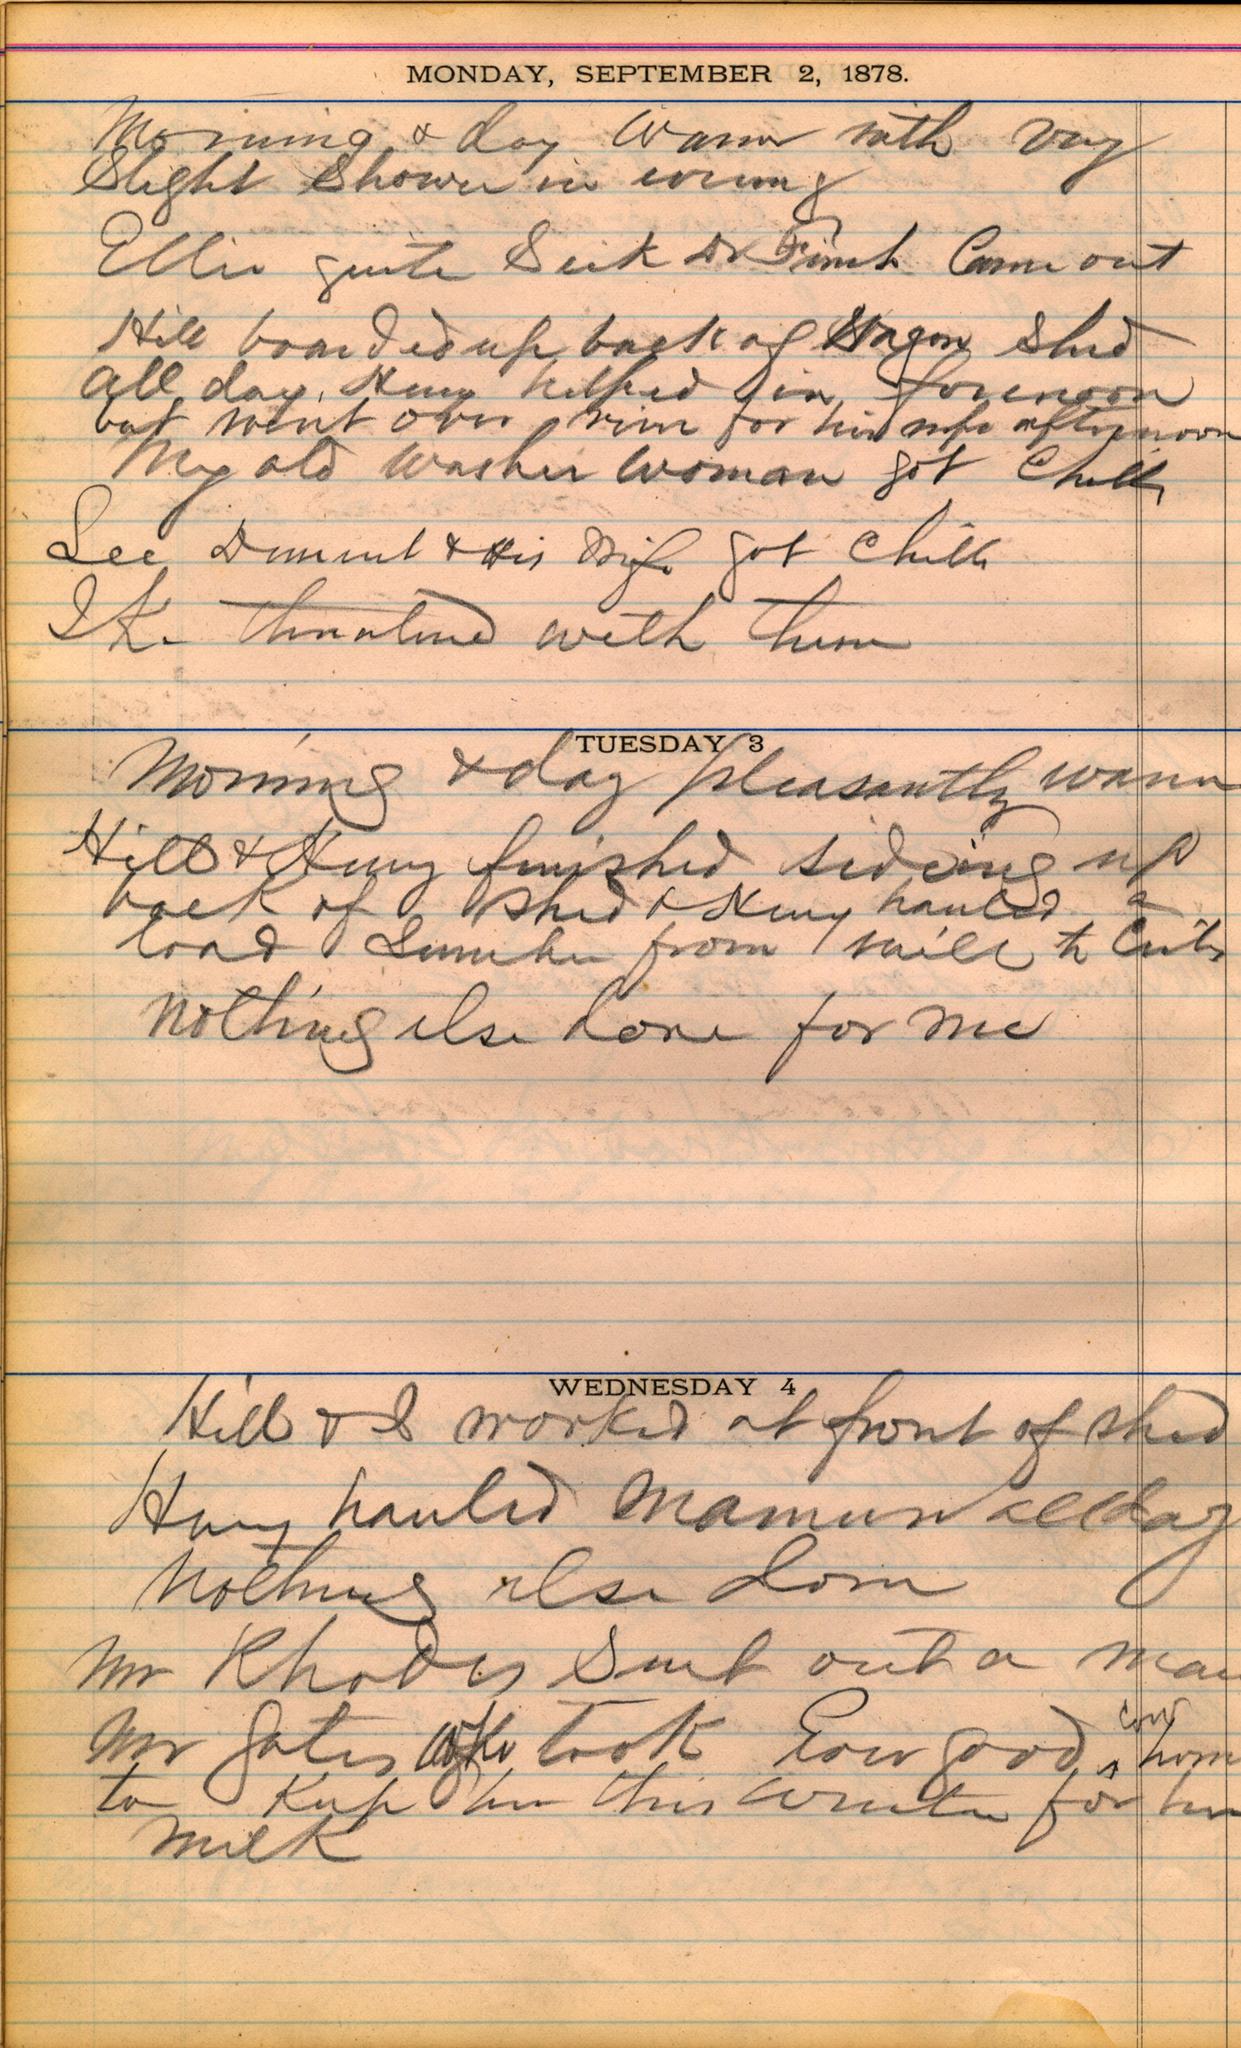 MONDAY, SEPTEMBER 2, 1878.
Morning & day Warm with very
Slight Shower in evening
Ellie quite Sick Dr Finch Came out
Hill boarded up back of Wagon Shed
all day. Henry helped in forenoon
but went over river for his wife afternoon
My old Washer Woman got Chills
Lee Dumont & His Wife got Chills
Ike threatened with them
TUESDAY 3
Morning & day pleasantly warm
Hill & Henry finished sideing up
back of Shed & Henry hauled a
load Lumber from mill to
Nothing else done for me
WEDNESDAY 4
Hill & I worked at front of shed
Henry hauled Manure all day
Nothing else done
Mr Rhodes Sent out a man
Mr Gates who took Ewe good cow home
to Keep her this Winter for her
Milk